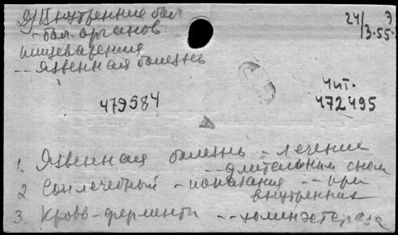 Я) Внутренние бол
- бол. органов
пищеварения
-- язвенная болезнь
24/ Э
/3-55
479584
Чит.
472495
1. Язвенная болезнь - лечение
-- длительным сном
2 Сон лечебный - показания -- при
внутренних
3. Кровь - ферменты -- холинэстераза